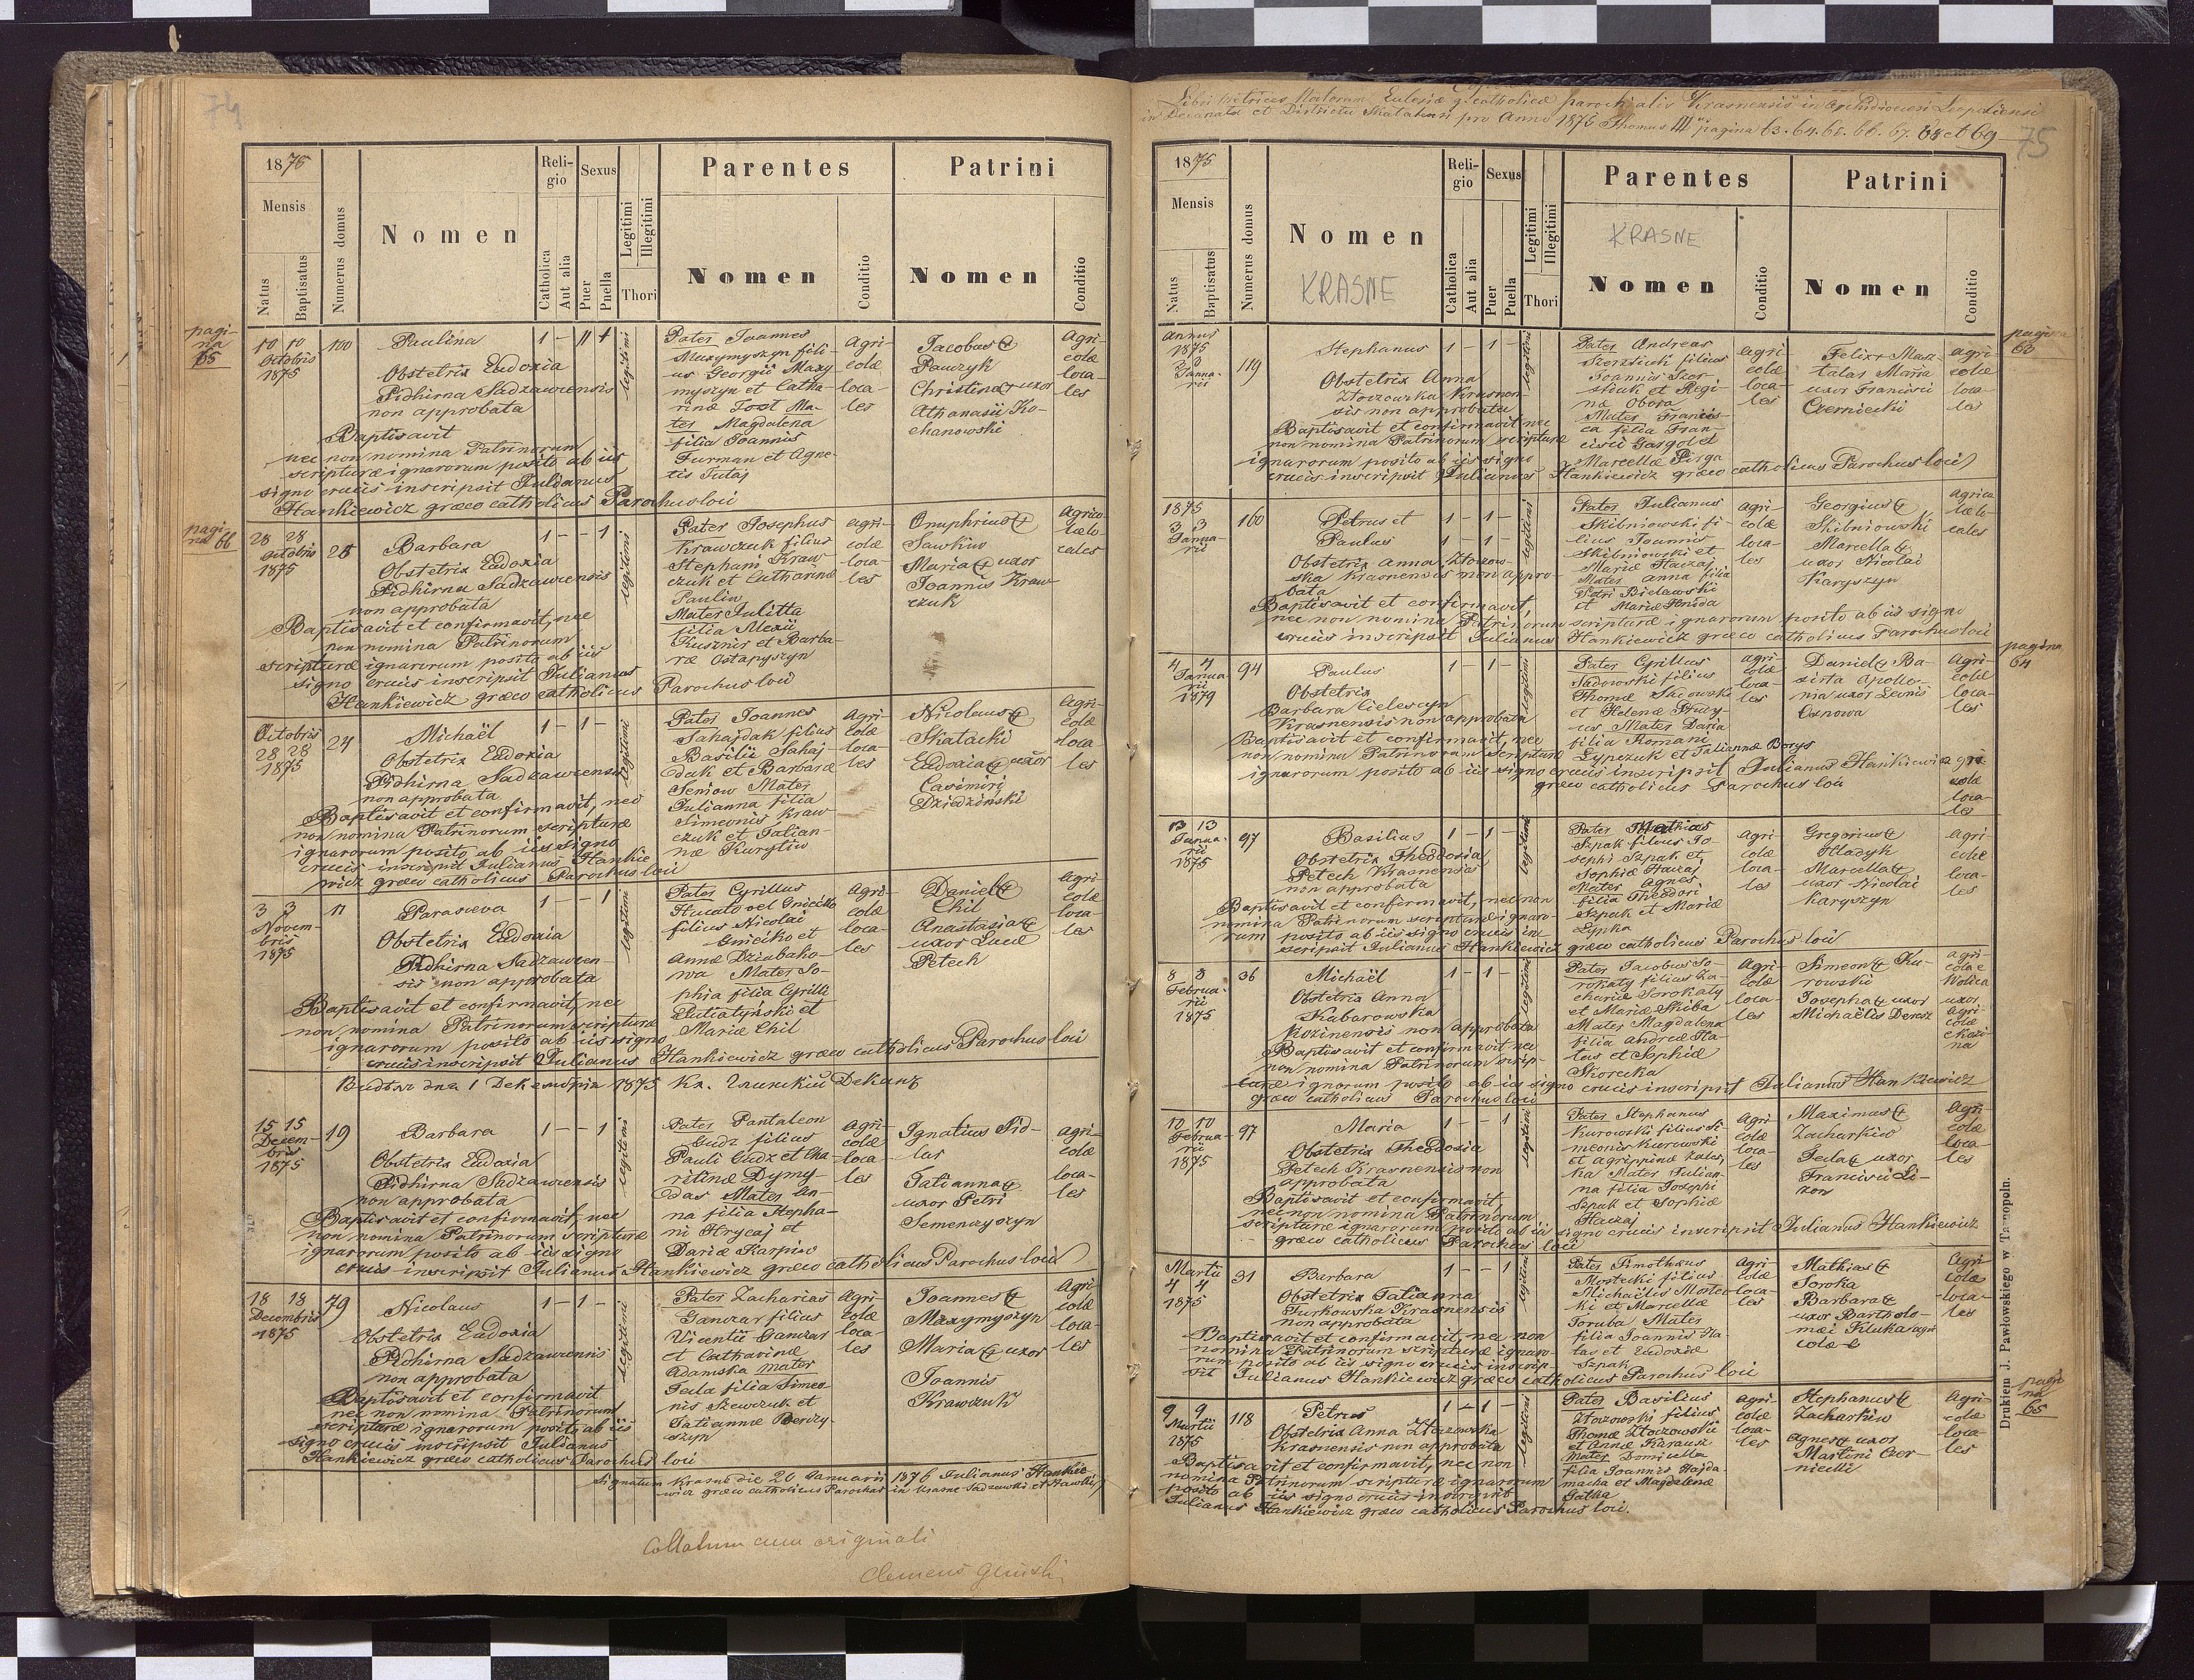 74
1875
Mensis
Natus
Baptisatus
Numerus domus
Nomen
Religio
Catholica
Aut alia
Sexus
Puer
Puella
Legitimi
Illegitimi
Thori
Parentes
Nomen
Conditio
Patrini
Nomen
Conditio
pagi-
na
65
10 10
Octobris
1875
100
Paulina
1 - 1
Obstetrix Eudoxia
Pidhirna Sadzawensis
non approbata
Baptisavit
nec non nomina Patrinorum
scripturæ ignarorum posito ab iis
signo crucis inscripsit Julianus
Hankiewicz græco catholicus Parochus loci
legitimi
Pater Joannes
Maxymyszyn fili-
us Georgii Maxy
myszyn et Catha-
rinæ Tost Ma-
ter Magdalena
filia Joannis
Furman et Agne-
tis Tutaj
Agri-
colæ
loca-
les
Jacobus
Pawzyk
Christina uxor
Athanasii Ko-
chanowski
Agri-
colæ
loca-
les
pagi-
na 66
28 28
Octobris
1875
28
Barbara
1 - - 1
Obstetrix Eudoxia
Pidhirna Sadzawensis
non approbata
Baptisavit et confirmavit, nec
non nomina Patrinorum
scripturæ ignarorum posito ab iis
signo crucis inscripsit Julianus
Hankiewicz græco catholicus Parochus loci
legitimi
Pater Josephus
Krawczuk filius
Stephani Kraw
czuk et Catharinæ
Paulin
Mater Julitta
filia Alexii
Kusznir et Barba-
ræ Ostapyszyn
agri-
colæ
loca-
les
Onuphrius
Sawkiw
Maria uxor
Joannis Kraw
czuk
Agrico
læ lo
cales
Octobris
28 28
1875
24
Michaël
1 - 1 -
Obstetrix Eudoxia
Pidhirna Sadzawensis
non approbata
Baptisavit et confirmavit, nec
non nomina Patrinorum scripturæ
ignarorum posito ab iis signo
crucis inscripsit Julianus Hankie
wicz græco catholicus Parochus loci
legitimi
Pater Joannes
Sahajdak filius
Basilii Sahaj-
dak et Barbaræ
Seniow Mater
Julianna filia
Simeonis Kraw
czuk et Talian-
næ Kurytiw
Agri-
colæ
loca-
les
Nicolaus
Skatacki
Eudoxia uxor
Casimiri
Dziedzinski
Agri-
colæ
loca-
les
3 3
Novem-
bris
1875
11
Parasceva
1 - - 1
Obstetrix Eudoxia
Pidhirna Sadzawen-
sis non approbata
Baptisavit et confirmavit, nec
non nomina Patrinorum scripturæ
ignarorum posito ab iis signo
crucis inscripsit Julianus Hankiewicz græco catholicus Parochus loci
legitimi
Pater Cyrillus
filius Nicolai
Gniciko et
Annæ Dziubako-
wa Mater So-
phia filia Cyrilli
Lutiatyński et
Mariæ Chil
Agri-
colæ
loca-
les
Daniel
Chil
Anastasia
uxor Lucæ
Petech
Agri-
colæ
loca-
les
15 15
Decem-
bris
1875
19
Barbara
1 - - 1
Obstetrix Eudoxia
Pidhirna Sadzawensis
non approbata
Baptisavit et confirmavit, nec
non nomina Patrinorum scripturæ
ignarorum posito ab iis signo
crucis inscripsit Julianus Hankiewicz græco catholicus Parochus loci
legitimi
Pater Pantaleon
Gudz filius
Pauli Gudz et Cha-
ritinæ Dymy-
das Mater An-
na filia Stepha-
ni Hrycaj et
Dariæ Karpiw
Agri-
colæ
loca-
les
Ignatius Pid-
las
Tatianna
uxor Petri
Semenzyszyn
agri-
colæ
loca-
les
18 18
Decembris
1875
79
Nicolaus
1 - 1 -
Obstetrix Eudoxia
Pidhirna Sadzawensis
non approbata
Baptisavit et confirmavit
nec non nomina Patrinorum
scripturæ ignarorum posito ab iis
signo crucis inscripsit Julianus
Hankiewicz græco catholicus Parochus loci
legitimi
Pater Zacharias
Ganzar filius
Vicentii Ganzar
et Catharinæ
Adamska Mater
Tecla filia Simeo-
nis Szewczuk et
Tatiannæ
Agri-
colæ
loca-
les
Joannes
Maxymyszyn
Maria uxor
Joannis
Krawczuk
Agri
colæ
loca-
les
Signatum Krasne die 20 Januarii 1876 Julianus Hankie
wicz græco catholicus Parochus in Krasne Sadzawki et
Collatum cum originali
Libri Metrices Natorum Eclesiæ g. catholicæ parochialis Krasnensis in Archidiocesi Leopoliensi
in Decanatu et Districtu Skalatensi pro Anno 1875 Thomus III pagina 63. 64. 65. 66. 67. 68 et 69
75
1875
Mensis
Natus
Baptisatus
Numerus domus
Nomen
KRASNE
Religio
Catholica
Aut alia
Sexus
Puer
Puella
Legitimi
Illegitimi
Thori
Parentes
KRASNE
Nomen
Conditio
Patrini
Nomen
Conditio
Annus
1875
3 3
Janua-
rii
119
Stephanus
1 - 1 -
Obstetrix Anna
Złoczowska Krasnen-
sis non approbata
Baptisavit et confirmavit nec
non nomina Patrinorum scripturæ
ignarorum posito ab iis signo
crucis inscripsit Julianus Hankiewicz græco catholicus Parochus loci
legitimi
Pater Andreas
Szerstiuk filius
Joannis Szer-
stiuk et Regi-
næ Obora
Mater Francis-
ca filia Fran-
cisci Gargol et
Marcellæ Pirga
agri
colæ
loca-
les
Felix Mas-
talar Maria
uxor Francisci
Czerniecki
agri-
colæ
loca-
les
pagina
63
1875
3 3
Janua-
rii
160
Petrus et
Paulus
1 - 1 -
1 - 1 -
Obstetrix Anna Złoczow-
ska Krasnensis non appro-
bata
Baptisavit et confirmavit,
nec non nomina Patrinorum scripturæ ignarorum posito ab iis signo
crucis inscripsit Julianus Hankiewicz græco catholicus Parochus loci
legitimi
Pater Julianus
Skibniowski fi-
lius Joannis
Skibniowski et
Mariæ Haczaj
Mater Anna filia
Petri Bielawski
et Mariæ Hnida
agri-
colæ
loca-
les
Georgius
Skibniowski
Marcella
uxor Nicolai
Karyszyn
Agrico
læ lo
cales
4 4
Janua-
rii
1879
94
Paulus
1 - 1 -
Obstetrix
Barbara Cielescyn
Krasnensis non approbata
Baptisavit et confirmavit, nec
non nomina Patrinorum scripturæ
ignarorum posito ab iis signo crucis inscripsit Julianus Hankiewicz
græco catholicus Parochus loci
legitimi
Pater Cyrillus
Sadowski filius
Thomæ Sadowski
et Helenæ
Mater Daria
filia Romani
Lypczuk et Taliannæ Borys
agri
colæ
loca-
les
Daniel Ba-
sista Apollo-
nia uxor Leonis
Osnowa
Agri-
colæ
loca-
les
pagina
64
13 13
Janua-
rii
1875
97
Basilius
1 - 1 -
Obstetrix Theodosia
Petech Krasnensis
non approbata
Baptisavit et confirmavit, nec non
nomina Patrinorum scripturæ ignaro-
rum posito ab iis signo crucis in
scripsit Julianus Hankiewicz græco catholicus Parochus loci
legitimi
Pater Mathias
Szpak filius Jo-
sephi Szpak et
Sophiæ Haczaj
Mater Agnes
filia Theodori
Szpak et Mariæ
Lypka
Agri
colæ
loca-
les
Gregorius
Hladyk
Marcella
uxor Nicolai
Karyszyn
Agri
colæ
loca-
les
8 3
Februa-
rii
1875
36
Michaël
1 - 1 -
Obstetrix Anna
Kubarowska
Kozinensis non approbata
Baptisavit et confirmavit nec
non nomina Patrinorum scrip-
turæ ignarorum posito ab iis signo crucis inscripsit Julianus Hankiewicz
græco catholicus Parochus loci
legitimi
Pater Jacobus So-
rokaty filius Za-
chariæ Sorokaty
et Mariæ Skiba
Mater Magdalena
filia Andreæ Ha-
las et Sophiæ
Skorecka
Agri-
colæ
loca-
les
Simeon Ku-
rowski
Josepha uxor
Michaëlis Deresz
agri-
colæ
Wolica
uxor
agri
colæ
10 10
Februa-
rii
1875
97
Maria
1 - - 1
Obstetrix Theodosia
Petech Krasnensis non
approbata
Baptisavit et confirmavit,
nec non nomina Patrinorum
scripturæ ignarorum posito ab iis signo crucis inscripsit Julianus Hankiewicz
græco catholicus Parochus loci
legitimi
Pater Stephanus
Kurowski filius Si-
meonis Kurowski
et Agrippinæ Zales
ka Mater Julian-
na filia Josephi
Szpak et Sophiæ
Haczaj
Agri
colæ
loca-
les
Maximus
Zacharkiw
Tecla uxor
Francisci Li-
zon
Agri
colæ
loca-
les
Martii
4 4
1875
31
Barbara
1 - - 1
Obstetrix Talianna
Turkowska Krasnensis
non approbata
Baptisavit et confirmavit, nec non
nomina Patrinorum scripturæ ignaro-
rum posito ab iis signo crucis inscrip-
sit Julianus Hankiewicz græco catholicus Parochus loci
legitimi
Pater Timotheus
Mostecki filius
Michaëlis Mostec
ki et Marcellæ
Toruba Mater
filia Joannis Ha-
las et Eudoxiæ
Szpak
Agri
colæ
loca-
les
Mathias
Soroka
Barbara
uxor Bartholo-
mæi Kluka agri
colæ
Agri
colæ
loca-
les
9 9
Martii
1875
118
Petrus
1 - 1 -
Obstetrix Anna Złoczowska
Krasnensis non approbata
Baptisavit et confirmavit, nec non
nomina Patrinorum scripturæ ignarorum
posito ab iis signo crucis inscripsit
Julianus Hankiewicz græco catholicus Parochus loci.
legitimi
Pater Basilius
Złoczowski filius
Thomæ Złoczowski
et Annæ Karausz
Mater Domicella
filia Joannis Hajda-
macha et Magdalenæ
Galka
agri-
colæ
loca-
les
Stephanus
Zacharkiw
Agnes uxor
Martini Czer-
niecki
Agri-
colæ
loca-
les
pagi
na
65
Drukiem J. Pawłowskiego w Tarnopolu.